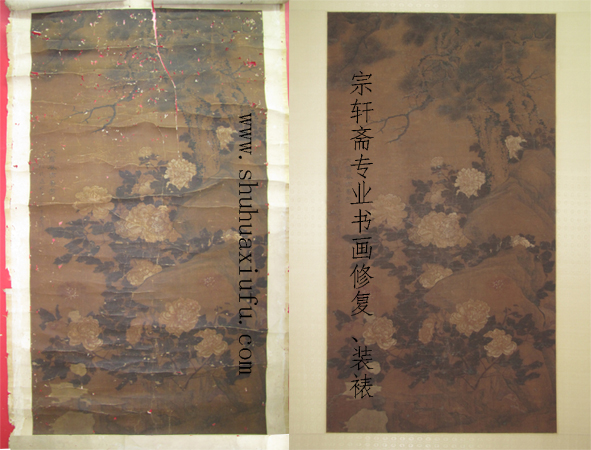 www.shuhuaxiufu.com
宗轩斋专业书画修复、装裱